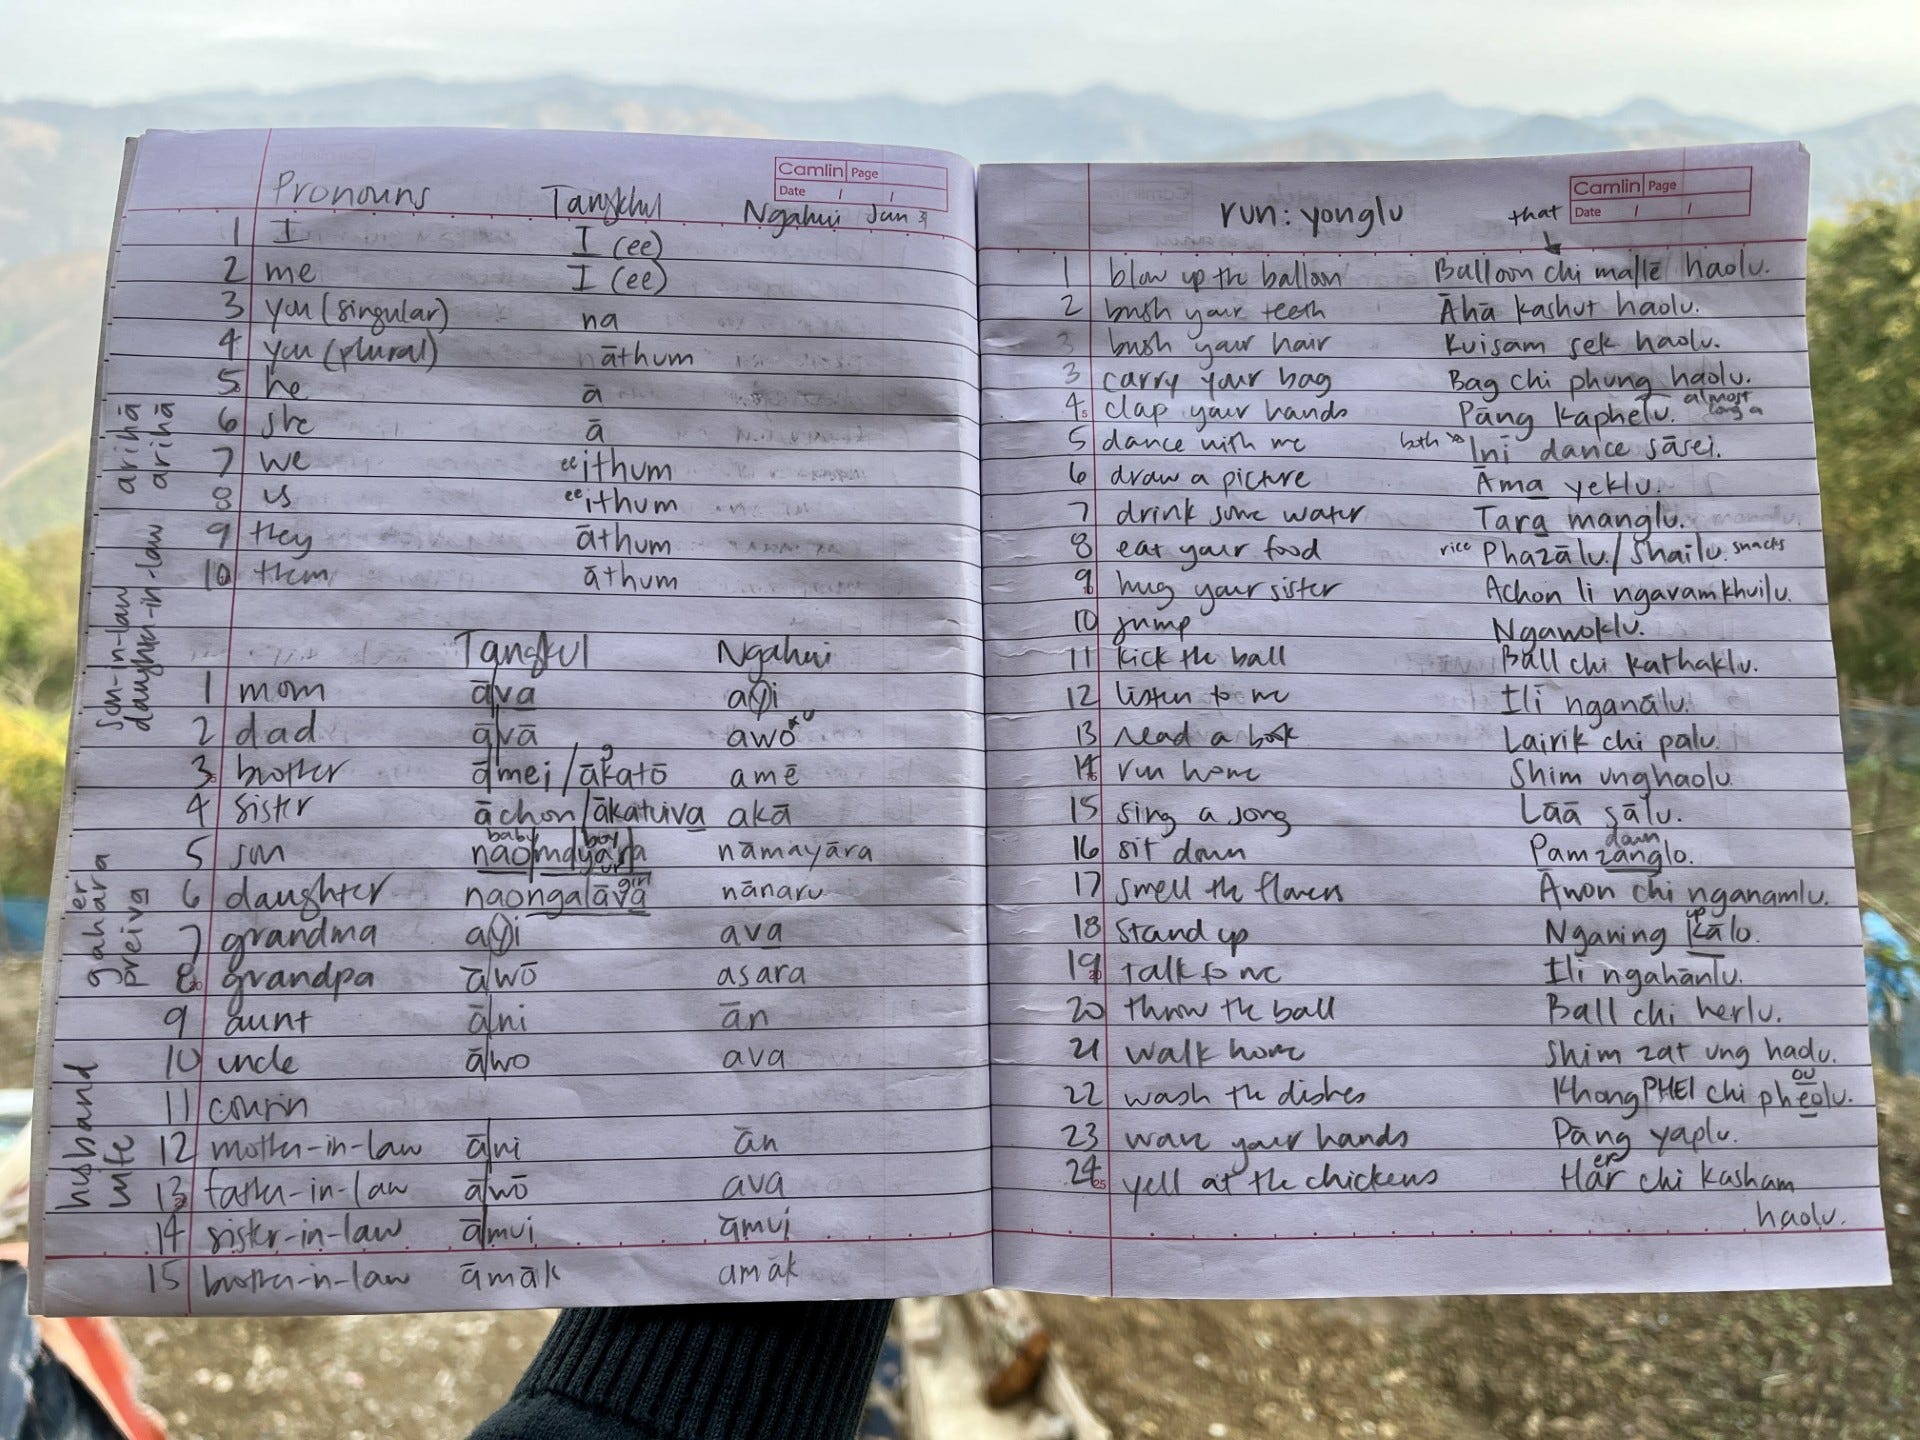 Camlin Page
Date / /
Pronouns Tangkhul Ngahui Jan 3
1 I I (ee)
2 me I (ee)
3 you (singular) na
4 you (plural) nāthum
5 he ā
6 she ā
7 we ee ithum
8 us ee ithum
9 they āthum
10 them āthum
Tangkul Ngahui
1 mom ā|va ayi
2 dad ā|vā awo
3 brother ā|mei / ākatō amē
4 sister āchon/ākatuiva akā
baby boy
5 son nao|mayara nāmayāra
girl
6 daughter naongalāva nānaru
7 grandma ayi ava
8 grandpa ā|wō asara
9 aunt ā|ni ān
10 uncle ā|wo ava
11 cousin
12 mother-in-law ā|ni ān
13 father-in-law ā|wō ava
14 sister-in-law ā|mui āmui
15 brother-in-law āmāk amāk
arihā
arihā
son-in-law
daughter-in-law
er
gahara
preiva
husband
wife
Camlin Page
Date / /
run: yonglu that
1 blow up the balloon Balloon chi mallē haolu.
2 brush your teeth Āhā kashut haolu.
3 brush your hair Kuisam sek haolu.
3 carry your bag Bag chi phung haolu.
4 clap your hands Pāng kaphelu. almost long a
5 dance with me both Inī dance sāsei.
6 draw a picture Āma yeklu.
7 drink some water Tara manglu.
8 eat your food rice Phazālu./Shailu. snacks
9 hug your sister Achon li ngavamkhuilu.
10 jump Ngawoklu.
11 kick the ball Ball chi kathaklu.
12 listen to me Ili nganālu.
13 read a book Lairik chi palu.
14 run home Shim unghaolu
15 sing a song Lāā sālu.
down
16 sit down Pamzānglo.
17 smell the flowers Āwon chi nganamlu.
up
18 stand up Nganing kālo.
19 talk to me Ili ngahānlu.
20 throw the ball Ball chi herlu.
21 walk home Shim zat ung haolu.
ou
22 wash the dishes Khong PHEI chi pheolu.
23 wave your hands Pāng yaplu.
er
24 yell at the chickens Hār chi kasham
haolu.